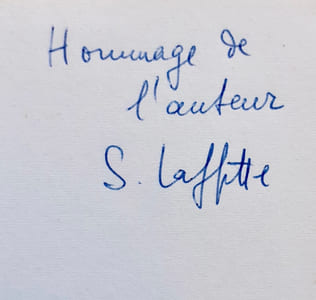 Hommage de
l'auteur
S. Laffitte